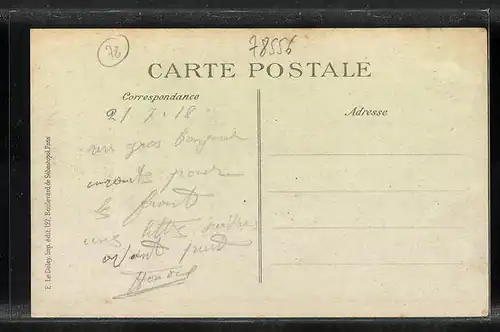 78
78556
CARTE POSTALE
Correspondance
Adresse
21 7.18
un gros bonjour
avant pour
le front
une lettre suivra
avant peut
E. Le Deley, Imp. édit. 127, Boulevard de Sébastopol, Paris